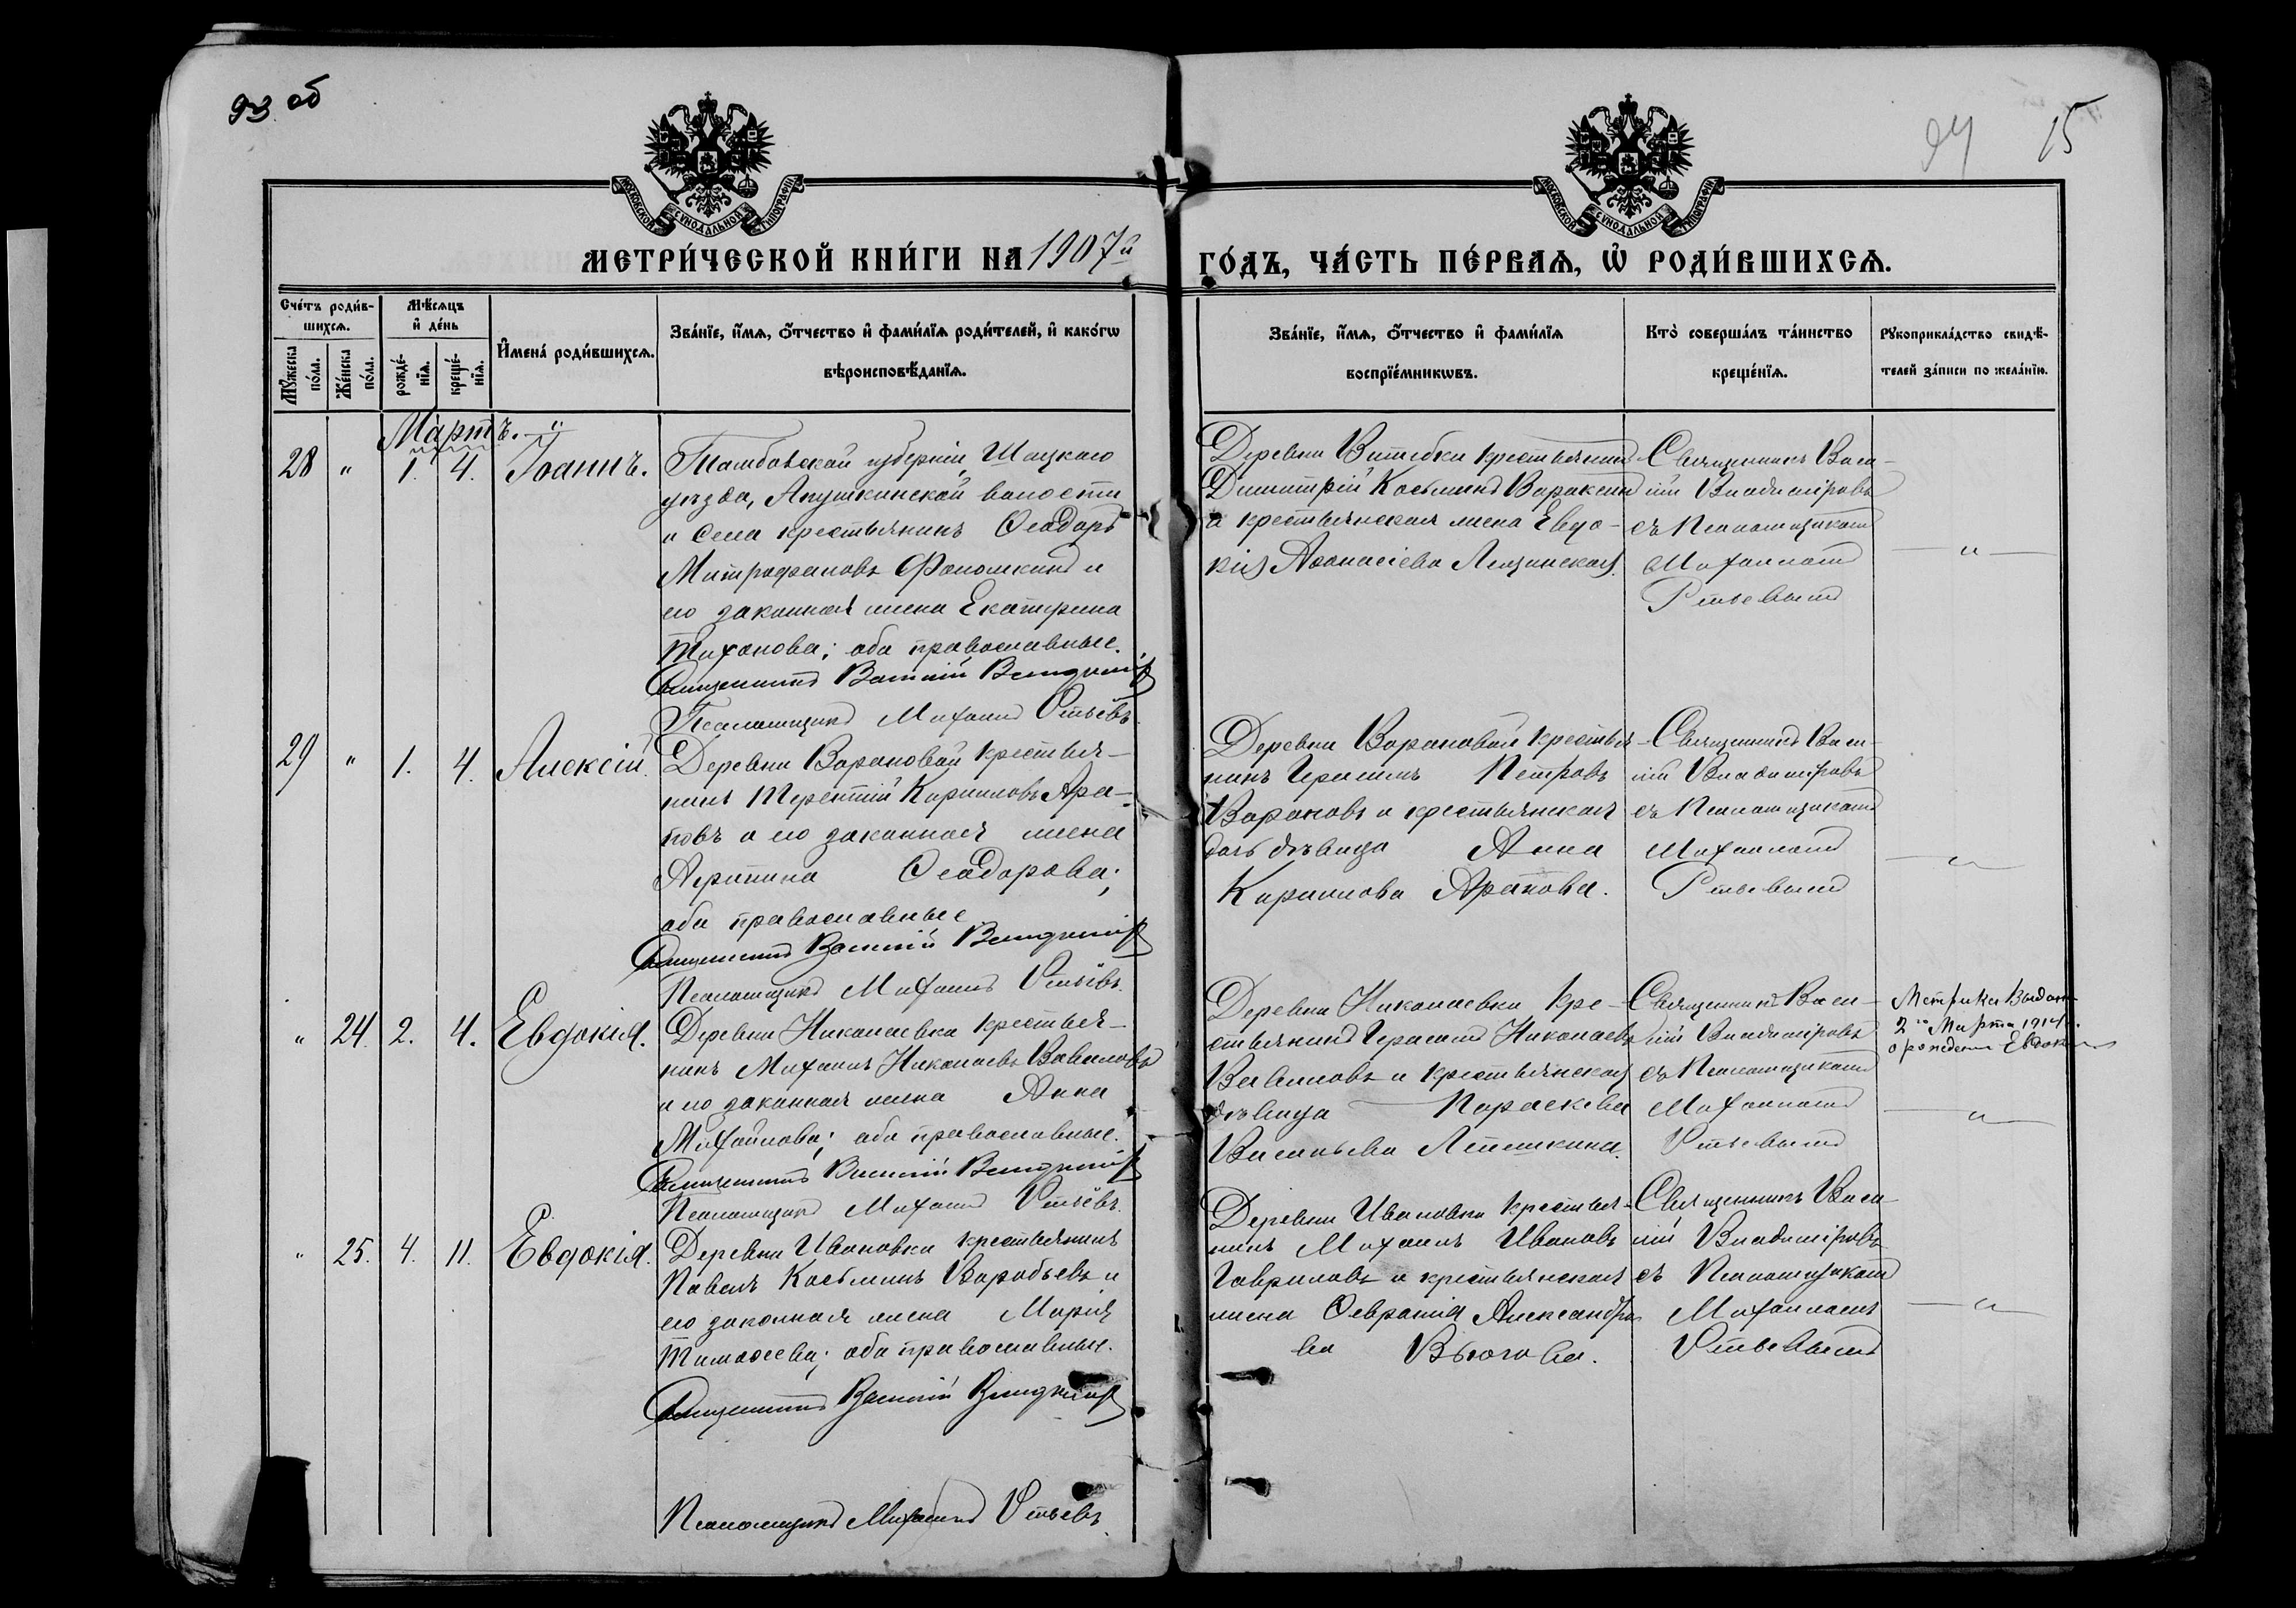 93 об
94 15
МОСКОВСКОЙ СѴНОДАЛЬНОЙ ТИПОГРАФІИ
МОСКОВСКОЙ СѴНОДАЛЬНОЙ ТИПОГРАФІИ
МЕТРИ́ЧЕСКОЙ КНИ́ГИ НА 1907й
ГО́ДЪ, ЧА́СТЬ ПЕ́РВАѦ, Ѡ҆ РОДИ́ВШИХСѦ.
Сче́тъ роди́в-
шихсѧ.
Мꙋ́жеска по́ла.
Же́нска по́ла.
Мѣ́сѧцъ
и҆ де́нь
рожде́-
нїѧ.
креще́-
нїѧ.
И҆мена̀ роди́вшихсѧ.
Зва́нїе, и҆́мѧ, ѻ҆́тчество и҆ фами́лїѧ роди́телей, и҆ како́гѡ
вѣроисповѣ́данїѧ.
Зва́нїе, и҆́мѧ, ѻ҆́тчество и҆ фами́лїѧ
воспрїе́мникѡвъ.
Кто̀ соверша́лъ та́инство
креще́нїѧ.
Рꙋкоприкла́дство свидѣ́-
телей за́писи по жела́нїю.
Мартъ.
28 " 1. 4. Іоаннъ.
Тамбовской губерніи, Шацкаго
уѣзда, Апушкинской волости
и села крестьянинъ Ѳеодоръ
Митрофановъ Фономкинъ и
его законная жена Екатерина
Тихонова; оба православные.
Священникъ Василій
Псаломщикъ Михаилъ Утьевъ.
Деревни Витебки крестьянинъ
Димитрій Косьминъ Вараксинъ
и крестьянская жена Евдо-
кія Аѳанасіева
Священникъ Васи-
лій Владиміровъ
съ Псаломщикомъ
Михаиломъ
Утьевымъ
— " —
29 " 1. 4. Алексій.
Деревни Вороновой крестья-
нинъ Терентій Кирилловъ Ара-
повъ и его законная жена
Агрипина Ѳеодорова;
оба православные
Священникъ Василій
Псаломщикъ Михаилъ Утьевъ.
Деревни Вороновой крестья-
нинъ Герасимъ Петровъ
Вороновъ и крестьянская
дочь дѣвица Анна
Кириллова Арапова.
Священникъ Васи-
лій Владиміровъ
съ Псаломщикомъ
Михаиломъ
Утьевымъ
— " —
" 24. 2. 4. Евдокія.
Деревни Николаевки крестья-
нинъ Михаилъ Николаевъ Вавиловъ
и его законная жена Анна
Михайлова; оба православные.
Священникъ Василій
Псаломщикъ Михаилъ Утьевъ.
Деревни Николаевки кре-
стьянинъ Герасимъ Николаевъ
Вавиловъ и крестьянская
дѣвица Параскева
Васильева Лепешкина.
Священникъ Васи-
лій Владиміровъ
съ Псаломщикомъ
Михаиломъ
Утьевымъ
Метрика выдана
2го Марта
о рожденіи Евдокіи
— " —
" 25. 4. 11. Евдокія.
Деревни Ивановки крестьянинъ
Павелъ Косьминъ Воробьевъ и
его законная жена Марія
Тимоѳеева; оба православные.
Священникъ Василій
Псаломщикъ Михаилъ Утьевъ.
Деревни Ивановки крестья-
нинъ Михаилъ Ивановъ
Гавриловъ и крестьянская
жена Ѳевронія Александро-
ва Вьюгова.
Священникъ Васи-
лій Владиміровъ
съ Псаломщикомъ
Михаиломъ
Утьевымъ
— " —